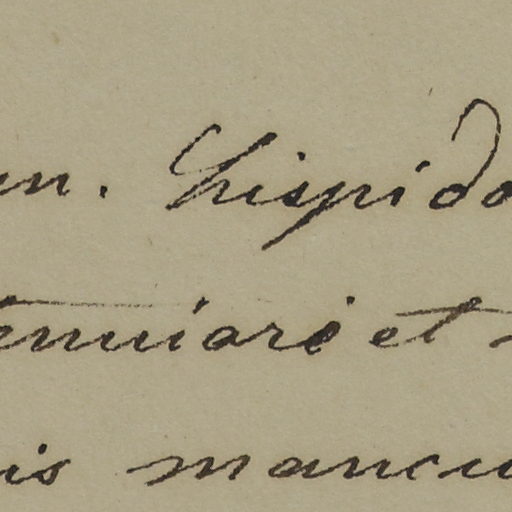 un. hispido
tenuiori et
is mancu